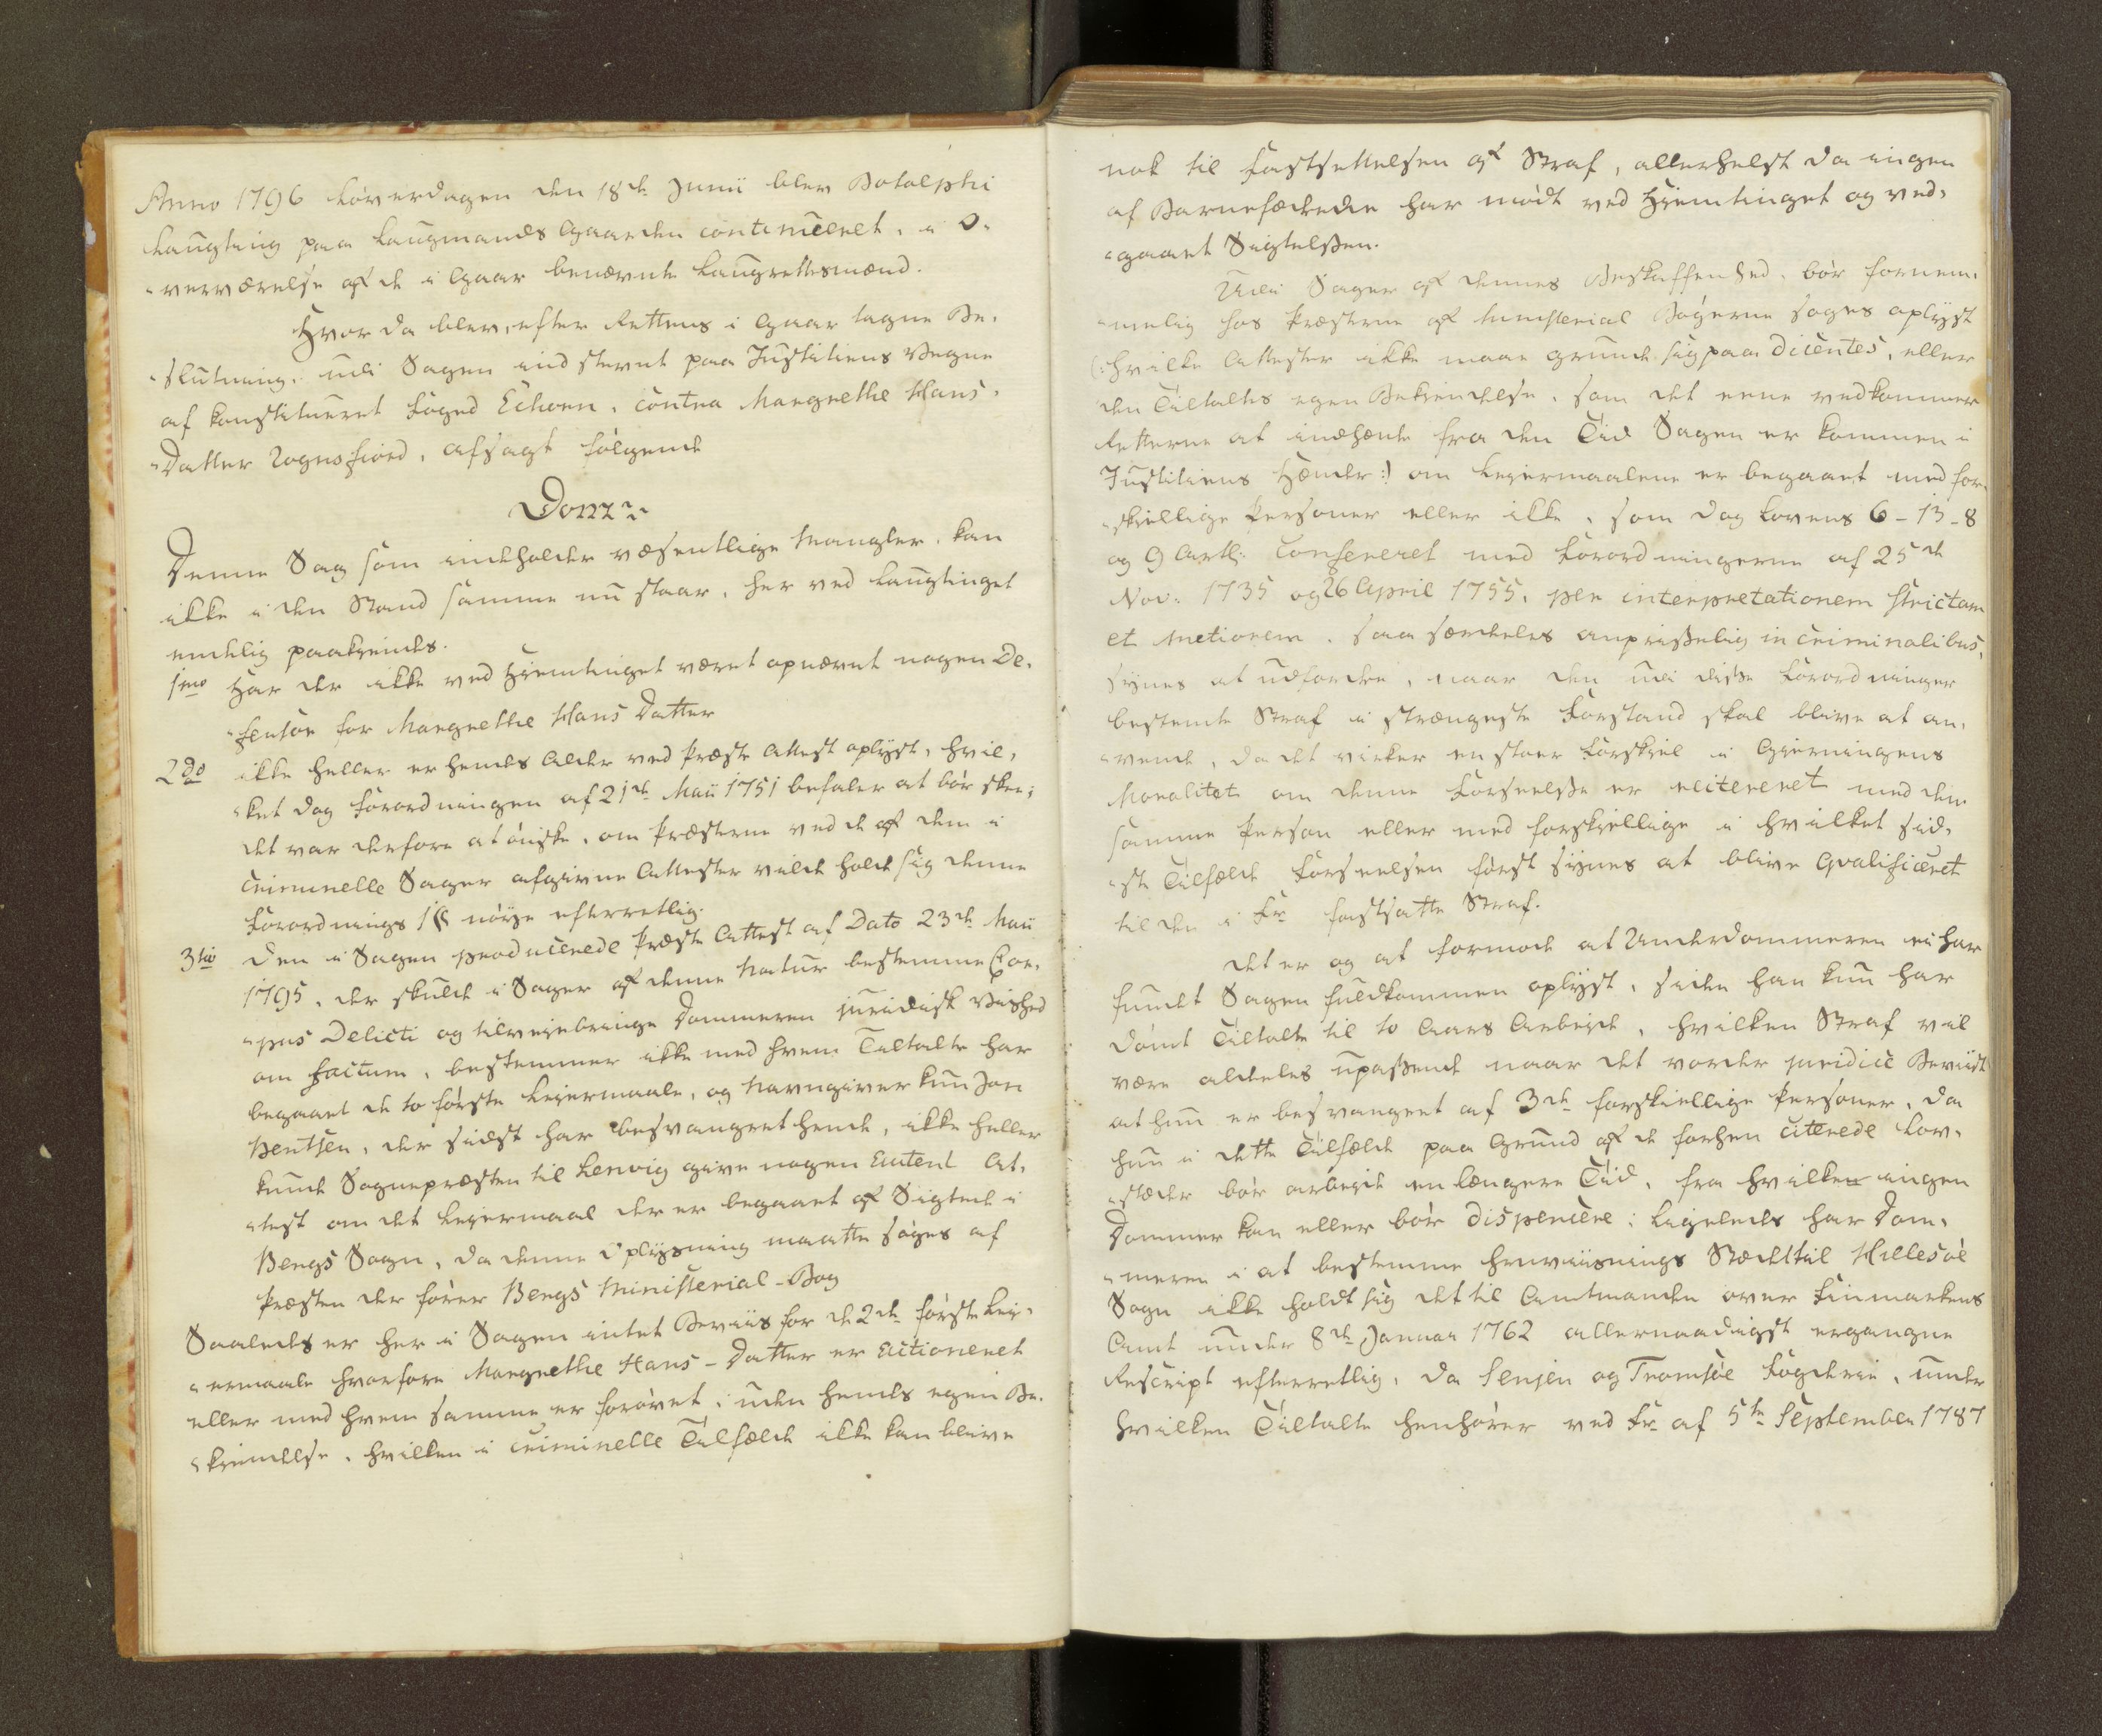 Anno 1796 Løverdagen den 18de Junii blev Botolphi
Laugting paa Laugmands Gaarden contniceret, i O-
-verværelse af de i Gaar benævnte Laugrettesmænd.
Hvor da blev, efter Rettens i Gaar tagne Be-
-slutning, udi Sagen indstevnt paa Justitiens Vegne
af Constitueret Foged Echorn, contra Margrethe Hans-
-Datter Lognsfiord, afsagt følgende
Dom:
Denne Sag som indeholder væsentlige Mangler, kan
ikke i den Stand samme nu staar, her ved Laugtinget
endelig paakiendes.
1mo Har der ikke ved Hiemtinget været opnævnt nogen De-
-fensor for Margrethe Hans Datter
2do ikke heller er hendes Alder ved Præste Attest oplyst, hvil-
-ket dog Forordningen af 21de Maii 1751 befaler at bør skee;
det var derfore at ønske, om Præsterne ved de af dem i
Criminelle Sager afgivne Attester vilde holde sig denne
Forordnings 1§ nøye efterretlig.
3tio Den i Sagen producerede Præste Attest af Dato 23de Maii
1795, der skulde i Sager af denne Natur bestemme Cor-
-pus Delicti og tilveyebringe Dommeren juridisk Vished
om factum, bestemmer ikke med hvem Tiltalte har
begaaet de to første Leyermaale, og navngiver kun Jon
Bentsen, der sidst har besvangret hende, ikke heller
kunde Sognepræsten til Lenvig give nogen Eutent At-
-test om det Leyermaal der er begaaet af Sigtede i
Bergs Sogn, da denne Oplysning maatte søges af
Præsten der fører Bergs Ministerial-Bog
Saaledes er her i Sagen intet Beviis for de 2de første Ley-
-ermaale hvorfore Margrethe Hans-Datter er Actioneret
eller med hvem samme er forøvet, uden hendes egen Be-
-kiendelse, hvilken i Criminelle Tilfælde ikke kan blive
nok til Fastsettelsen af Straf, allerhelst da ingen
af Barnefædrene har mødt ved Hiemtinget og ved-
-gaaet Sigtelsen.
Udi Sager af dennes Beskaffenhed, bør fornem-
-melig hos Præsterne af Ministerial Bøgerne søges oplyst
(: hvilke Attester ikke maae grunde sig paa Dicentes, eller
den Tiltaltes egen Bekiendelse, som det eene vedkommer
Retterne at indhente fra den Tid Sagen er kommen i
Justitiens Hænder :) om Leyermaalene er begaaet med for-
-skiellige Personer eller ikke, som dog Lovens 6-13-8
og 9 Artl: Confereret med Forordningerne af 25de
Nov: 1735 og 26 April 1755, per interpretationem strictam
et metiorem, saa særdeles anpriselig in criminalibus,
synes at udfordre, naar den udi disse Forordninger
bestemte Straf i strængeste Forstand skal blive at an-
-vende, da det virker en stoer Forskiel i Gierningens
Moralitet om denne Forseelse er reitereret med den
samme Person eller med forskiellige i hvilket sid-
-ste Tilfælde Forseelsen først synes at blive Qvalificeret
til den i Fr. fastsatte Straf.
Det er og at formode at Underdommeren ei har
fundet Sagen fuldkommen oplyst, siden han kun har
dømt Tiltalte til to Aars Arbeyde, hvilken Straf vil
være aldeles upassende naar det vorder juridicè Beviist
at hun er besvangret af 3de forskiellige Personer, da
hun i dette Tilfælde paa Grund af de forhen citerede Lov-
-stæder bør arbeyde en længere Tid, fra hvilken ingen
Dommer kan eller bør dispencere; ligeledes har Dom-
-meren i at bestemme henviisnings Stædet til Hillesøe
Sogn ikke holdt sig det til Amtmanden over Finmarkens
Amt under 8de Januar 1762 allernaadigst ergangne
Rescript efterretlig, da Senjen og Tromsøe Fogderie, under
hvilken Tiltalte henhører ved Fr. af 5te September 1787